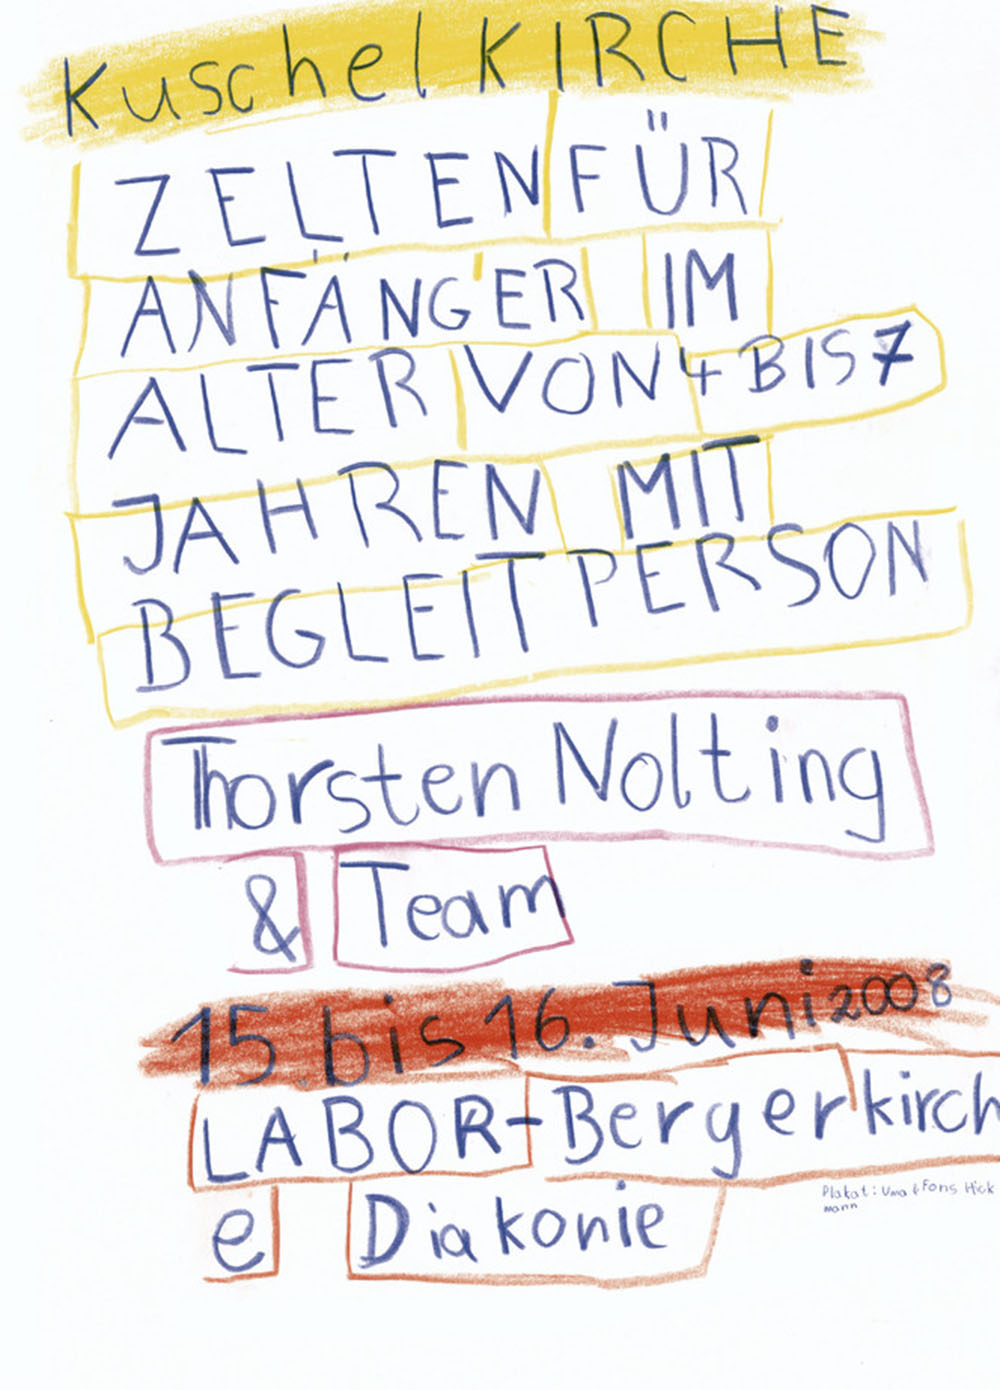 Kuschel KIRCHE
ZELTEN FÜR
ANFÄNGER IM
ALTER VON 4 BIS 7
JAHREN MIT
BEGLEITPERSON
Thorsten Nolting
& Team
15. bis 16. Juni 2008
LABOR-Bergerkirch
e Diakonie
Plakat: Uma & Fons Hick
mann